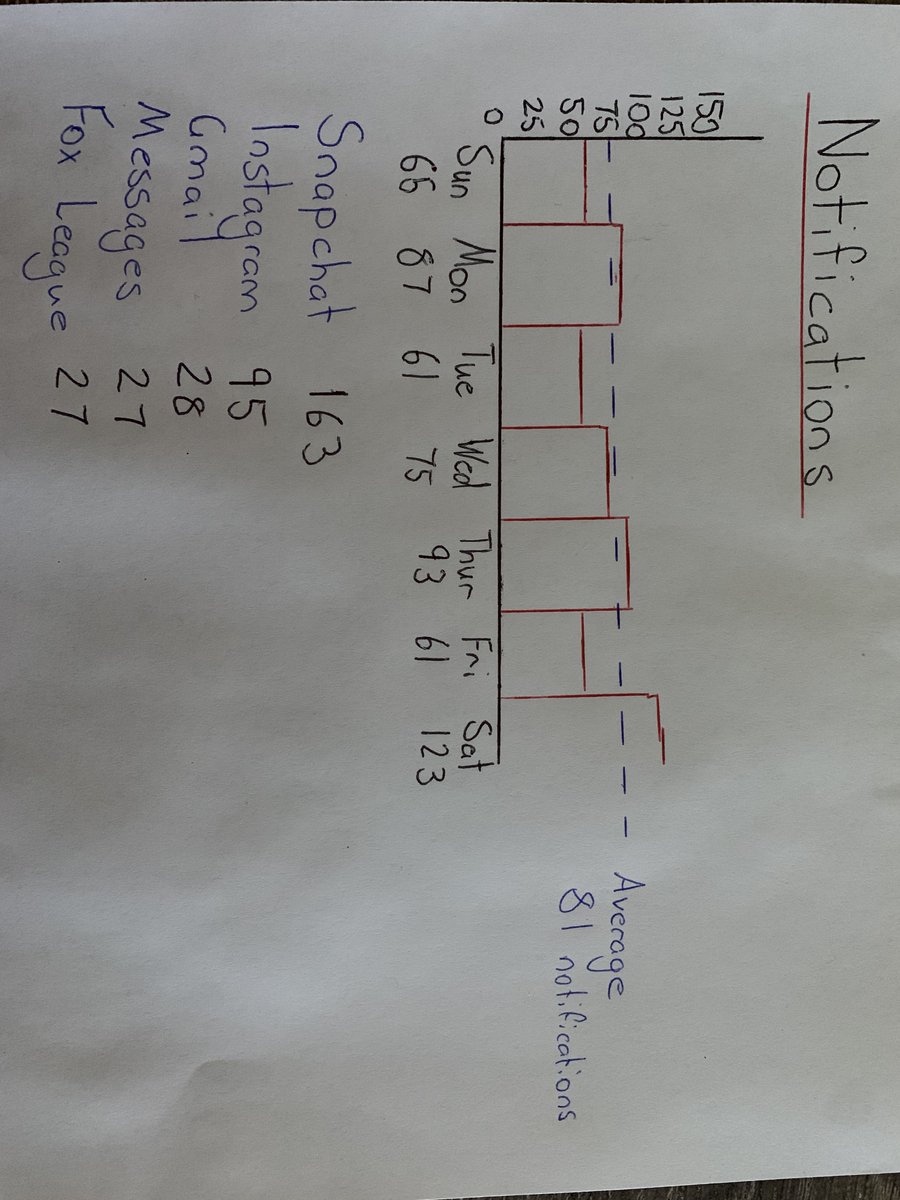 Notifications
150
125
100
75
50
25
0
Sun Mon Tue Wed Thur Fri Sat
66 87 61 75 93 61 123
Average
81 notifications
Snapchat 163
Instagram 95
Gmail 28
Messages 27
Fox League 27